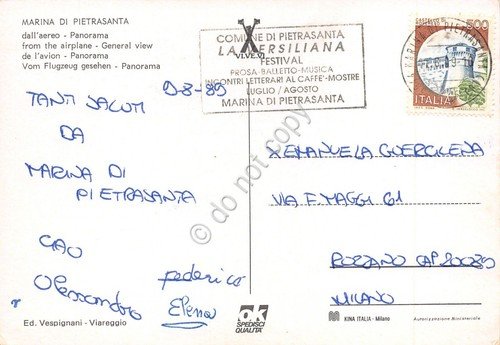 MARINA DI PIETRASANTA
dall'aereo - Panorama
from the airplane - General view
de l'avion - Panorama
Vom Flugzeug gesehen - Panorama
X
VI.VE.VI
COMUNE DI PIETRASANTA
LA VERSILIANA
FESTIVAL
PROSA-BALLETTO-MUSICA
INCONTRI LETTERARI AL CAFFE'-MOSTRE
LUGLIO / AGOSTO
MARINA DI PIETRASANTA
500
ITALIA
9-8-89
TANTI SALUTI
DA
MARINA DI
PIETRASANTA
CIAO
Alessandro
Federico
Elena
X EMANUELA GUERCILENA
VIA F. MAGGI 61
ROZZANO CAP. 20089
MILANO
© do not copy
Ed. Vespignani - Viareggio
OK
SPEDISCI
QUALITA'
KINA ITALIA - Milano
Autorizzazione Ministeriale